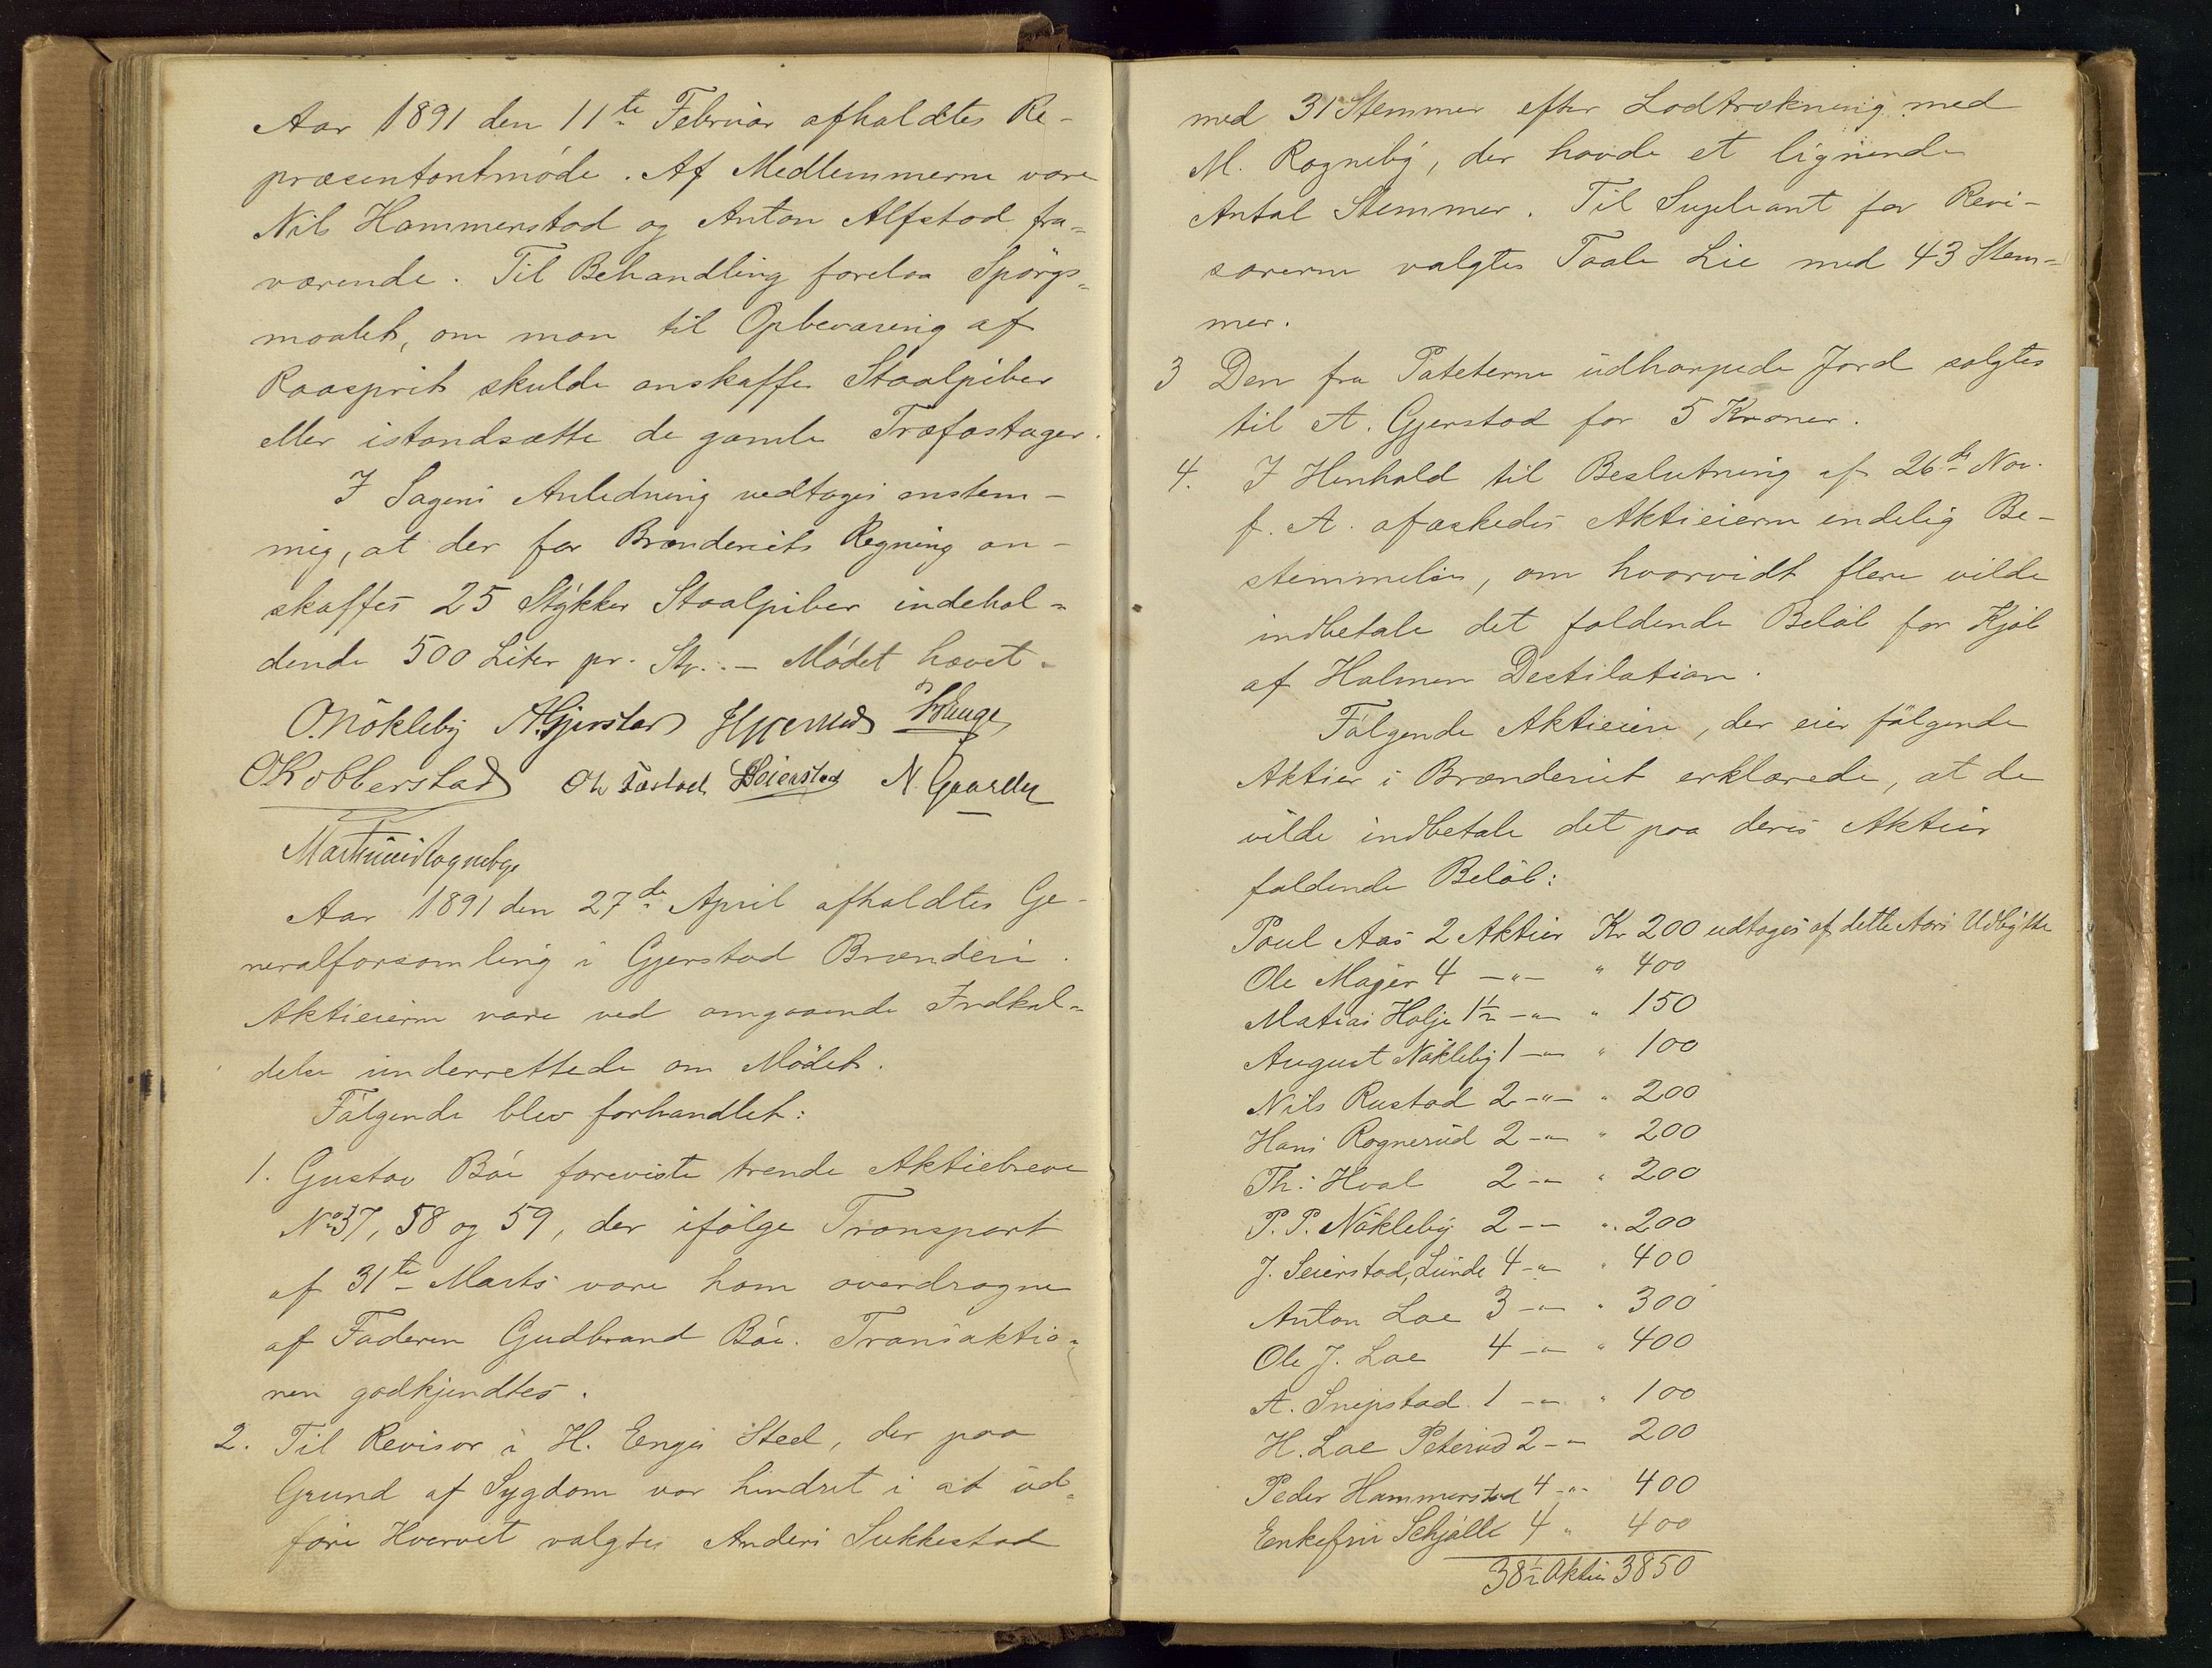 Aar 1891 den 11te Februar afholdtes Re-
præsentantmøde. Af Medlemmerne vare
Nils Hammerstad og Anton Alfstad fra=
værende. Til Behandling forelaa Spörgs=
maalet, om man til Opbevaring af
Raasprit skulde anskaffe Staalpiber
eller istandsætte de gamle Træfastager.
I Sagens Anledning vedtoges enstem-
mig, at der for Brænderiets Regning an-
skaffes 25 Stykker Staalpiber indehol=
dende 500 Liter pr. St. - Mödet hævet.
O. Nökleby A. Gjerstad
O Kobberstad N. Gaarder
Aar 1891 den 27de April afholdtes Ge-
neralforsamling i Gjerstad Brænderi.
Aktieeierne vare ved omgaaende Indkal=
delse underrettede om Mödet.
Fölgende blev forhandlet:
1. Gustav Böe foreviste trende Aktiebreve
No 37, 58 og 59, der ifölge Transport
af 31te Marts vare ham overdragne
af Faderen Gudbrand Böe. Transaktio=
nen godkjendtes.
2. Til Revisor i H. Enges Sted, der paa
Grund af Sygdom var hindret i at ud=
före Hvervet valgtes Anders Sukkestad
med 31 Stemmer efter Lodtrækning med
M. Rogneby, der havde et lignende
Antal Stemmer. Til Supleant for Revi-
sorerne valgtes Taale Lie med 43 Stem=
mer.
3 Den fra Poteterne udharpede Jord solgtes
til A. Gjerstad for 5 Kroner.
4. I Henhold til Beslutning af 26de Nov.
f. A. afæskedes Aktieierne endelig Be-
stemmelse, om hvorvidt flere vilde
indbetale det faldende Belöb for Kjöb
af Holmen Destilation.
Fölgende Aktieeiere, der eier fölgende
Aktier i Brænderiet erklærede, at de
vilde indbetale det paa deres Aktier
faldende Belöb:
Poul Aas 2 Aktier Kr 200 udtages af dette Aars Udbytte
Ole Majer 4 -"- " 400
Matias Holje 1½ -"- " 150
August Nökleby 1 -"- " 100
Nils Rustad 2 -"- " 200
Hans Rognerud 2 -"- " 200
Th. Hval 2 -"- " 200
P. P. Nökleby 2 -"- " 200
J. Seierstad, Lunde 4 -"- " 400
Anton Loe 3 -"- " 300
Ole J. Loe 4 -"- " 400
A. Snipstad 1 -"- " 100
H. Loe Peterud 2 -"- 200
Peder Hammerstad 4 -"- 400
Enkefru Schjölle 4 " 400
38½ Aktier 3850